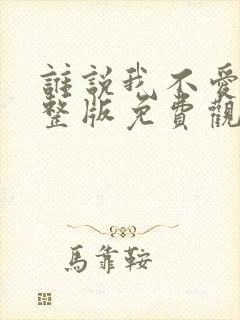 誰説我不愛
整版免費觀
馬靠鞍